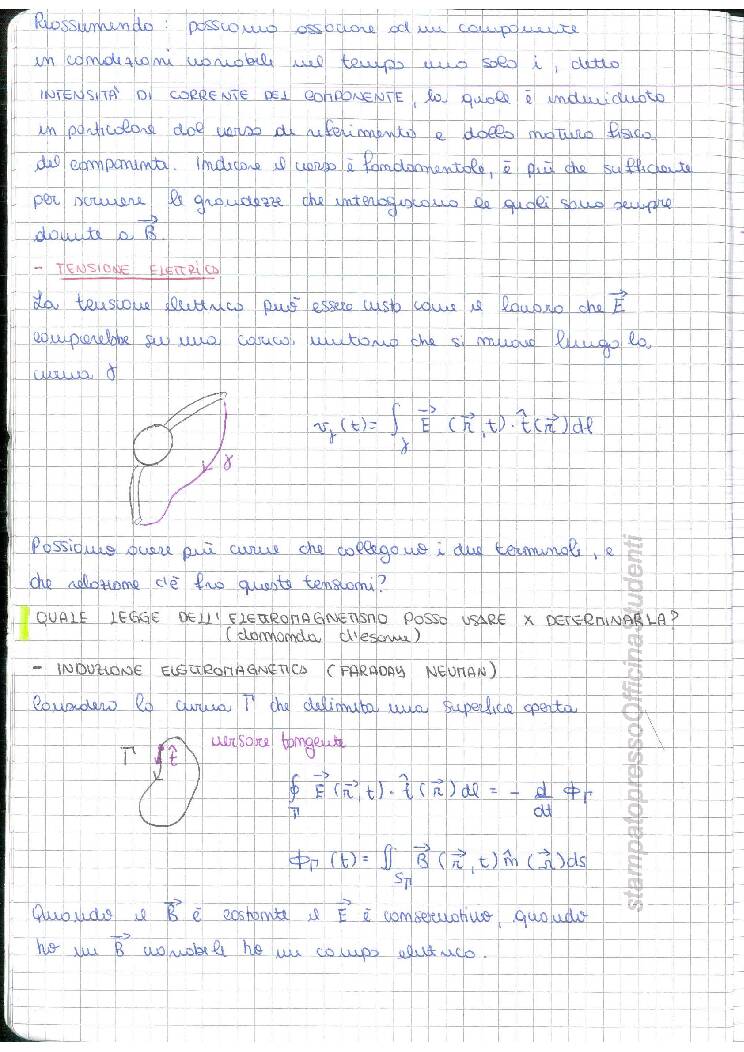 Riassumendo: possiamo associare ad un componente
in condizioni variabile nel tempo una sola i, detta
INTENSITÀ DI CORRENTE DEL COMPONENTE, la quale è individuata
in particolare dal verso di riferimento e dalla natura fisica
del componente. Indicare il verso è fondamentale, è più che sufficiente
per scrivere le grandezze che interagiscono le quali sono sempre
dovute a B⃗.
- TENSIONE ELETTRICA
La tensione elettrica può essere vista come il lavoro che E⃗
compierebbe su una carica unitaria che si muove lungo la
curva γ
γ
v_γ(t) = ∫_γ E⃗ (r⃗, t) · t̂(r⃗) dl
Possiamo avere più curve che collegano i due terminali, e
che relazione c'è fra queste tensioni?
QUALE LEGGE DELL'ELETTROMAGNETISMO POSSO USARE X DETERMINARLA?
(domanda d'esame)
- INDUZIONE ELETTROMAGNETICA (FARADAY NEUMAN)
Considero la curva Γ che delimita una superfice aperta
Γ t̂ versore tangente
∮_Γ E⃗ (r⃗, t) · t̂ (r⃗) dl = - d/dt Φ_Γ
Φ_Γ (t) = ∬_SΓ B⃗ (r⃗, t) n̂ (r⃗) ds
Quando il B⃗ è costante il E⃗ è conservativo, quando
ho un B⃗ variabile ho un campo elettrico.
stampatopressoOfficinaStudenti